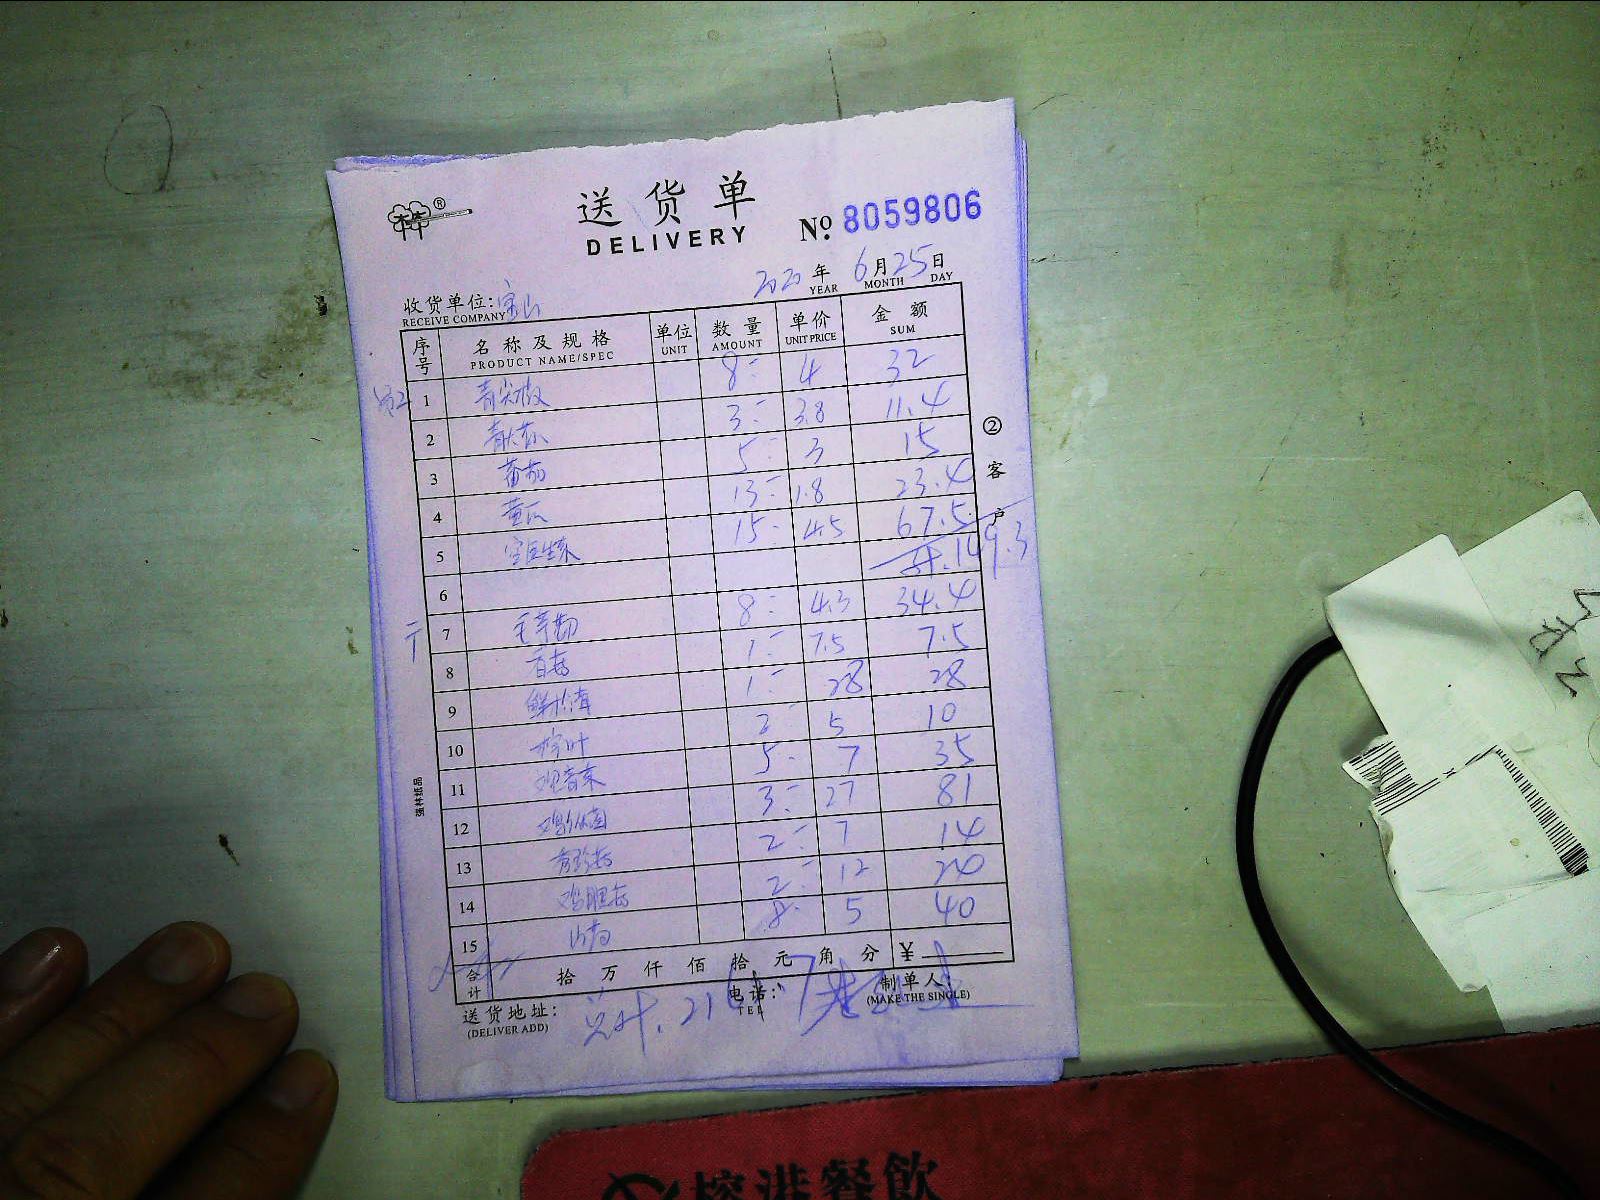 送货单
DELIVERY
№ 8059806
2020 年 6 月 25 日
YEAR MONTH DAY
收货单位: 宝山
RECEIVE COMPANY
序号 名称及规格 单位 数量 单价 金额
PRODUCT NAME/SPEC UNIT AMOUNT UNIT PRICE SUM
1 青尖椒 8 4 32
2 3 3.8 11.4
3 番茄 5 3 15
4 黄瓜 13 1.8 23.4
5 15 4.5 67.5
6 149.3
7 8 4.3 34.4
8 香菇 1 7.5 7.5
9 1 28 28
10 2 5 10
11 观音菜 5 7 35
12 鸡纵菌 3 27 81
13 秀珍菇 2 7 14
14 鸡腿菇 2 12 24
15 山药 8 5 40
合计 拾 万 仟 佰 拾 元 角 分 ¥
送货地址: 电话: 制单人:
(DELIVER ADD) TEL (MAKE THE SINGLE)
②客户
强林纸品
餐飲